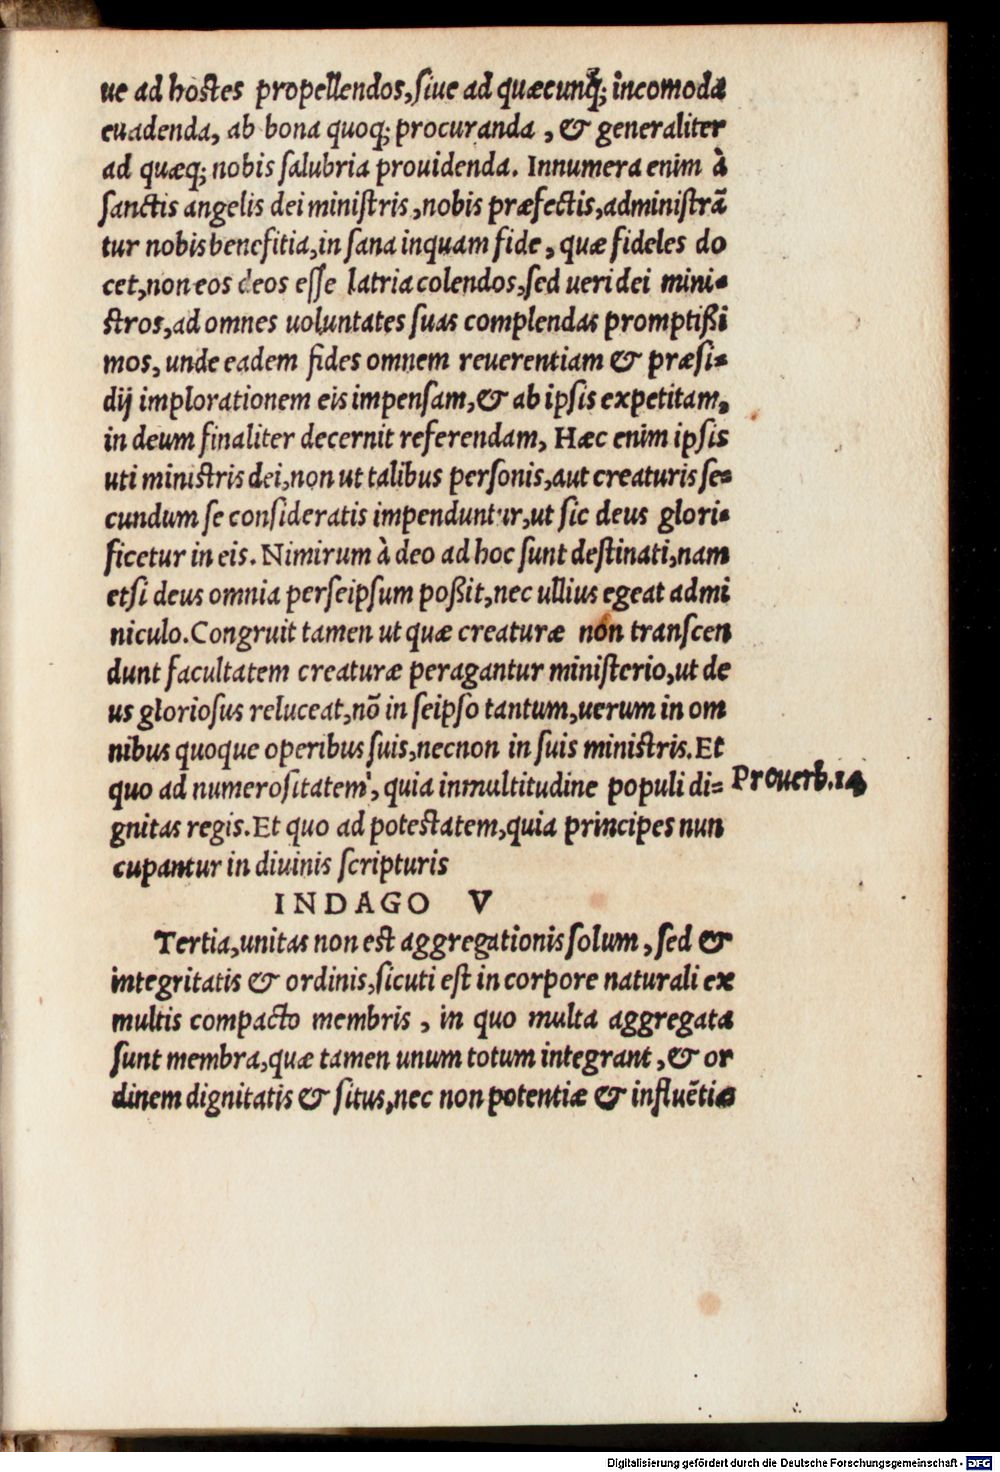 ue ad hostes propellendos, siue ad quæcunq; incomoda
euadenda, ab bona quoq; procuranda, & generaliter
ad quæq; nobis salubria prouidenda. Innumera enim à
sanctis angelis dei ministris, nobis præfectis, administrã
tur nobis benefitia, in sana inquam fide, quæ fideles do
cet, non eos deos esse latria colendos, sed ueri dei mini-
stros, ad omnes uoluntates suas complendas promptißi
mos, unde eadem fides omnem reuerentiam & præsi-
dij implorationem eis impensam, & ab ipsis expetitam,
in deum finaliter decernit referendam, Hæc enim ipsis
uti ministris dei, non ut talibus personis, aut creaturis se-
cundum se consideratis impenduntur, ut sic deus glori-
ficetur in eis. Nimirum à deo ad hoc sunt destinati, nam
etsi deus omnia per seipsum poßit, nec ullius egeat admi
niculo. Congruit tamen ut quæ creaturæ non transcen
dunt facultatem creaturæ peragantur ministerio, ut de
us gloriosus reluceat, nõ in seipso tantum, uerum in om
nibus quoque operibus suis, necnon in suis ministris. Et
quo ad numerositatem, quia in multitudine populi di- Prouerb. 14
gnitas regis. Et quo ad potestatem, quia principes nun
cupantur in diuinis scripturis
INDAGO V
Tertia, unitas non est aggregationis solum, sed &
integritatis & ordinis, sicuti est in corpore naturali ex
multis compacto membris, in quo multa aggregata
sunt membra, quæ tamen unum totum integrant, & or
dinem dignitatis & situs, nec non potentiæ & influẽtiæ
Digitalisierung gefördert durch die Deutsche Forschungsgemeinschaft - DFG